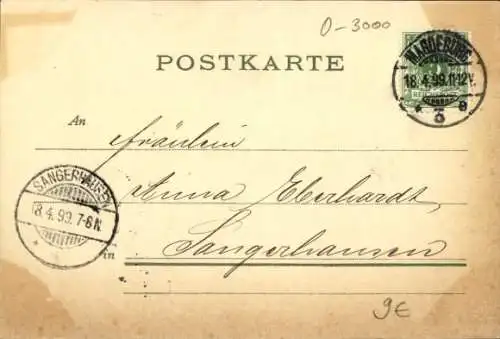 O-3000
POSTKARTE
MAGDEBURG
18.4.99.11-12V.
* 3 e
An
Fräulein
Anna Eberhardt,
SANGERHAUSEN
18.4.99.7-8N.
in
Sangerhausen
9€